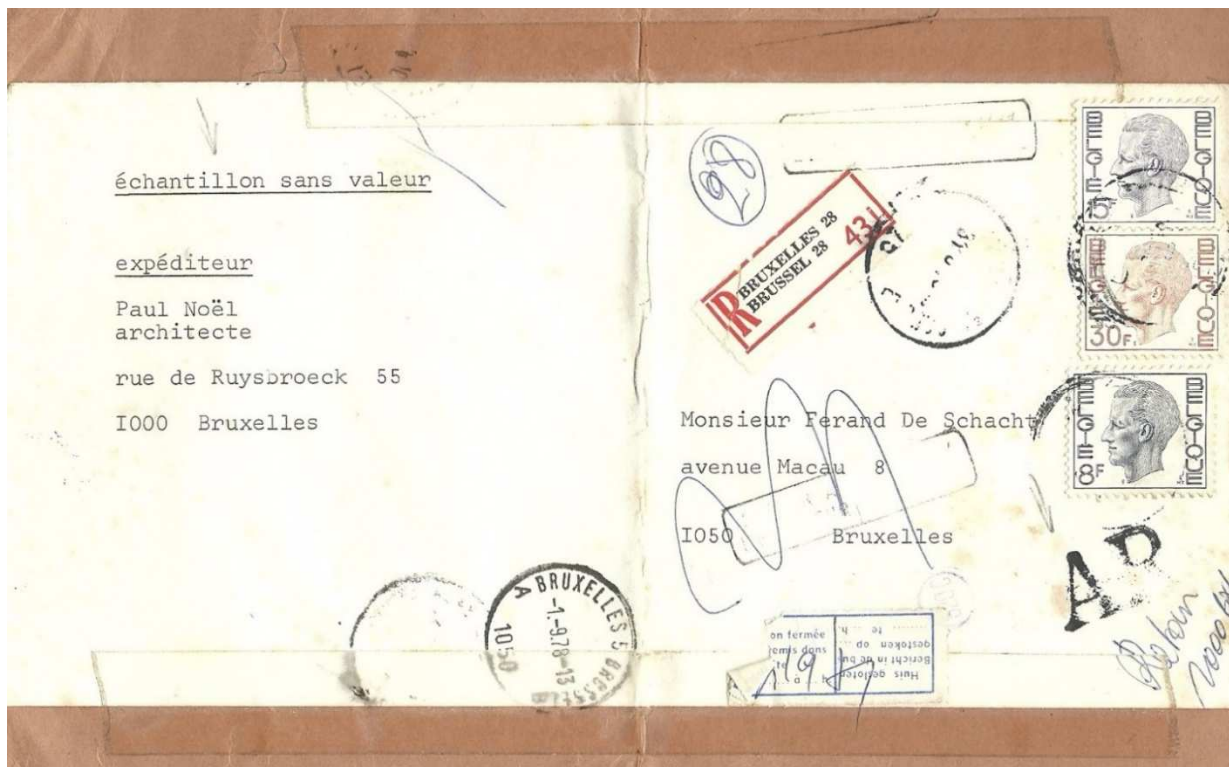 échantillon sans valeur
expéditeur
Paul Noël
architecte
rue de Ruysbroeck 55
I000 Bruxelles
98
BRUXELLES 28
BRUSSEL 28
R
BELGIE BELGIQUE
15F
BELGIE BELGIQUE
30F
BELGIE BELGIQUE
8F
Monsieur Ferand De Schacht
avenue Macau 8
I050 Bruxelles
AR
A BRUXELLES 5 BRUSSEL
-1.-9.78-13
1050
on fermée
remis dans
Huis gesloten
Bericht in de bus
gestoken op
te h.
Retour
1000